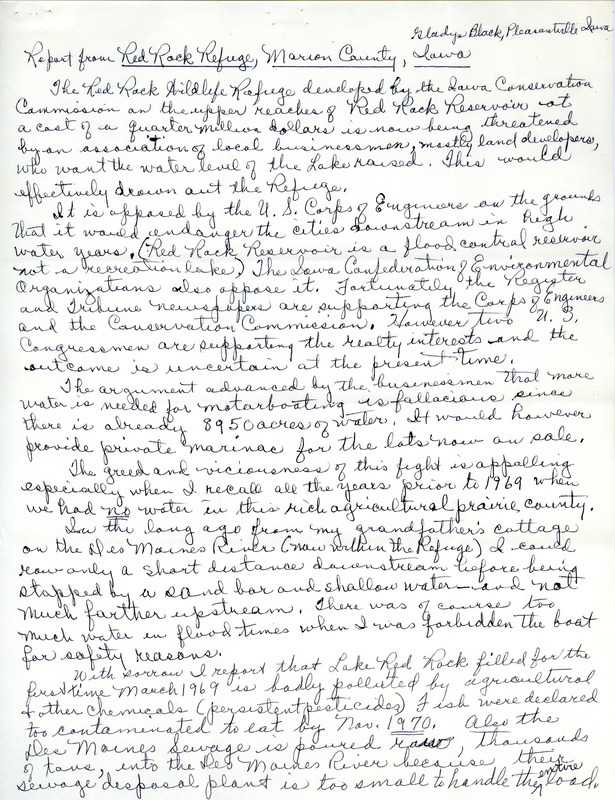 Gladys Black, Pleasantville Iowa
Report from Red Rock Refuge, Marion County, Iowa
The Red Rock Wildlife Refuge developed by the Iowa Conservation
Commission on the upper reaches of Red Rock Reservoir at
a cost of a quarter million dollars is now being threatened
by an association of local businessmen, mostly land developers,
who want the water level of the Lake raised. This would
effectively drown out the Refuge.
It is opposed by the U.S. Corps of Engineers on the grounds
that it would endanger the cities downstream in high
water years. (Red Rock Reservoir is a flood control reservoir
not a recreation lake.) The Iowa Confederation of Environmental
Organizations also oppose it. Fortunately the Register
and Tribune newspapers are supporting the Corps of Engineers
and the Conservation Commission. However two U.S.
Congressmen are supporting the realty interests and the
outcome is uncertain at the present time.
The argument advanced by the businessmen that more
water is needed for motorboating is fallacious since
there is already 8950 acres of water. It would however
provide private marinas for the lots now on sale.
The greed and viciousness of this fight is appalling
especially when I recall all the years prior to 1969 when
we had no water in this rich agricultural prairie county.
In the long ago from my grandfather's cottage
on the Des Moines River (now within the Refuge) I could
row only a short distance downstream before being
stopped by a sand bar and shallow water - and not
much farther upstream. There was of course too
much water in flood times when I was forbidden the boat
for safety reasons.
With sorrow I report that Lake Red Rock filled for the
first time March 1969 is badly polluted by agricultural
& other chemicals (persistent pesticides) Fish were declared
too contaminated to eat by Nov. 1970. Also the
Des Moines Sewage is poured raw, thousands
of tons, into the Des Moines River because their
sewage disposal plant is too small to handle the entire load.